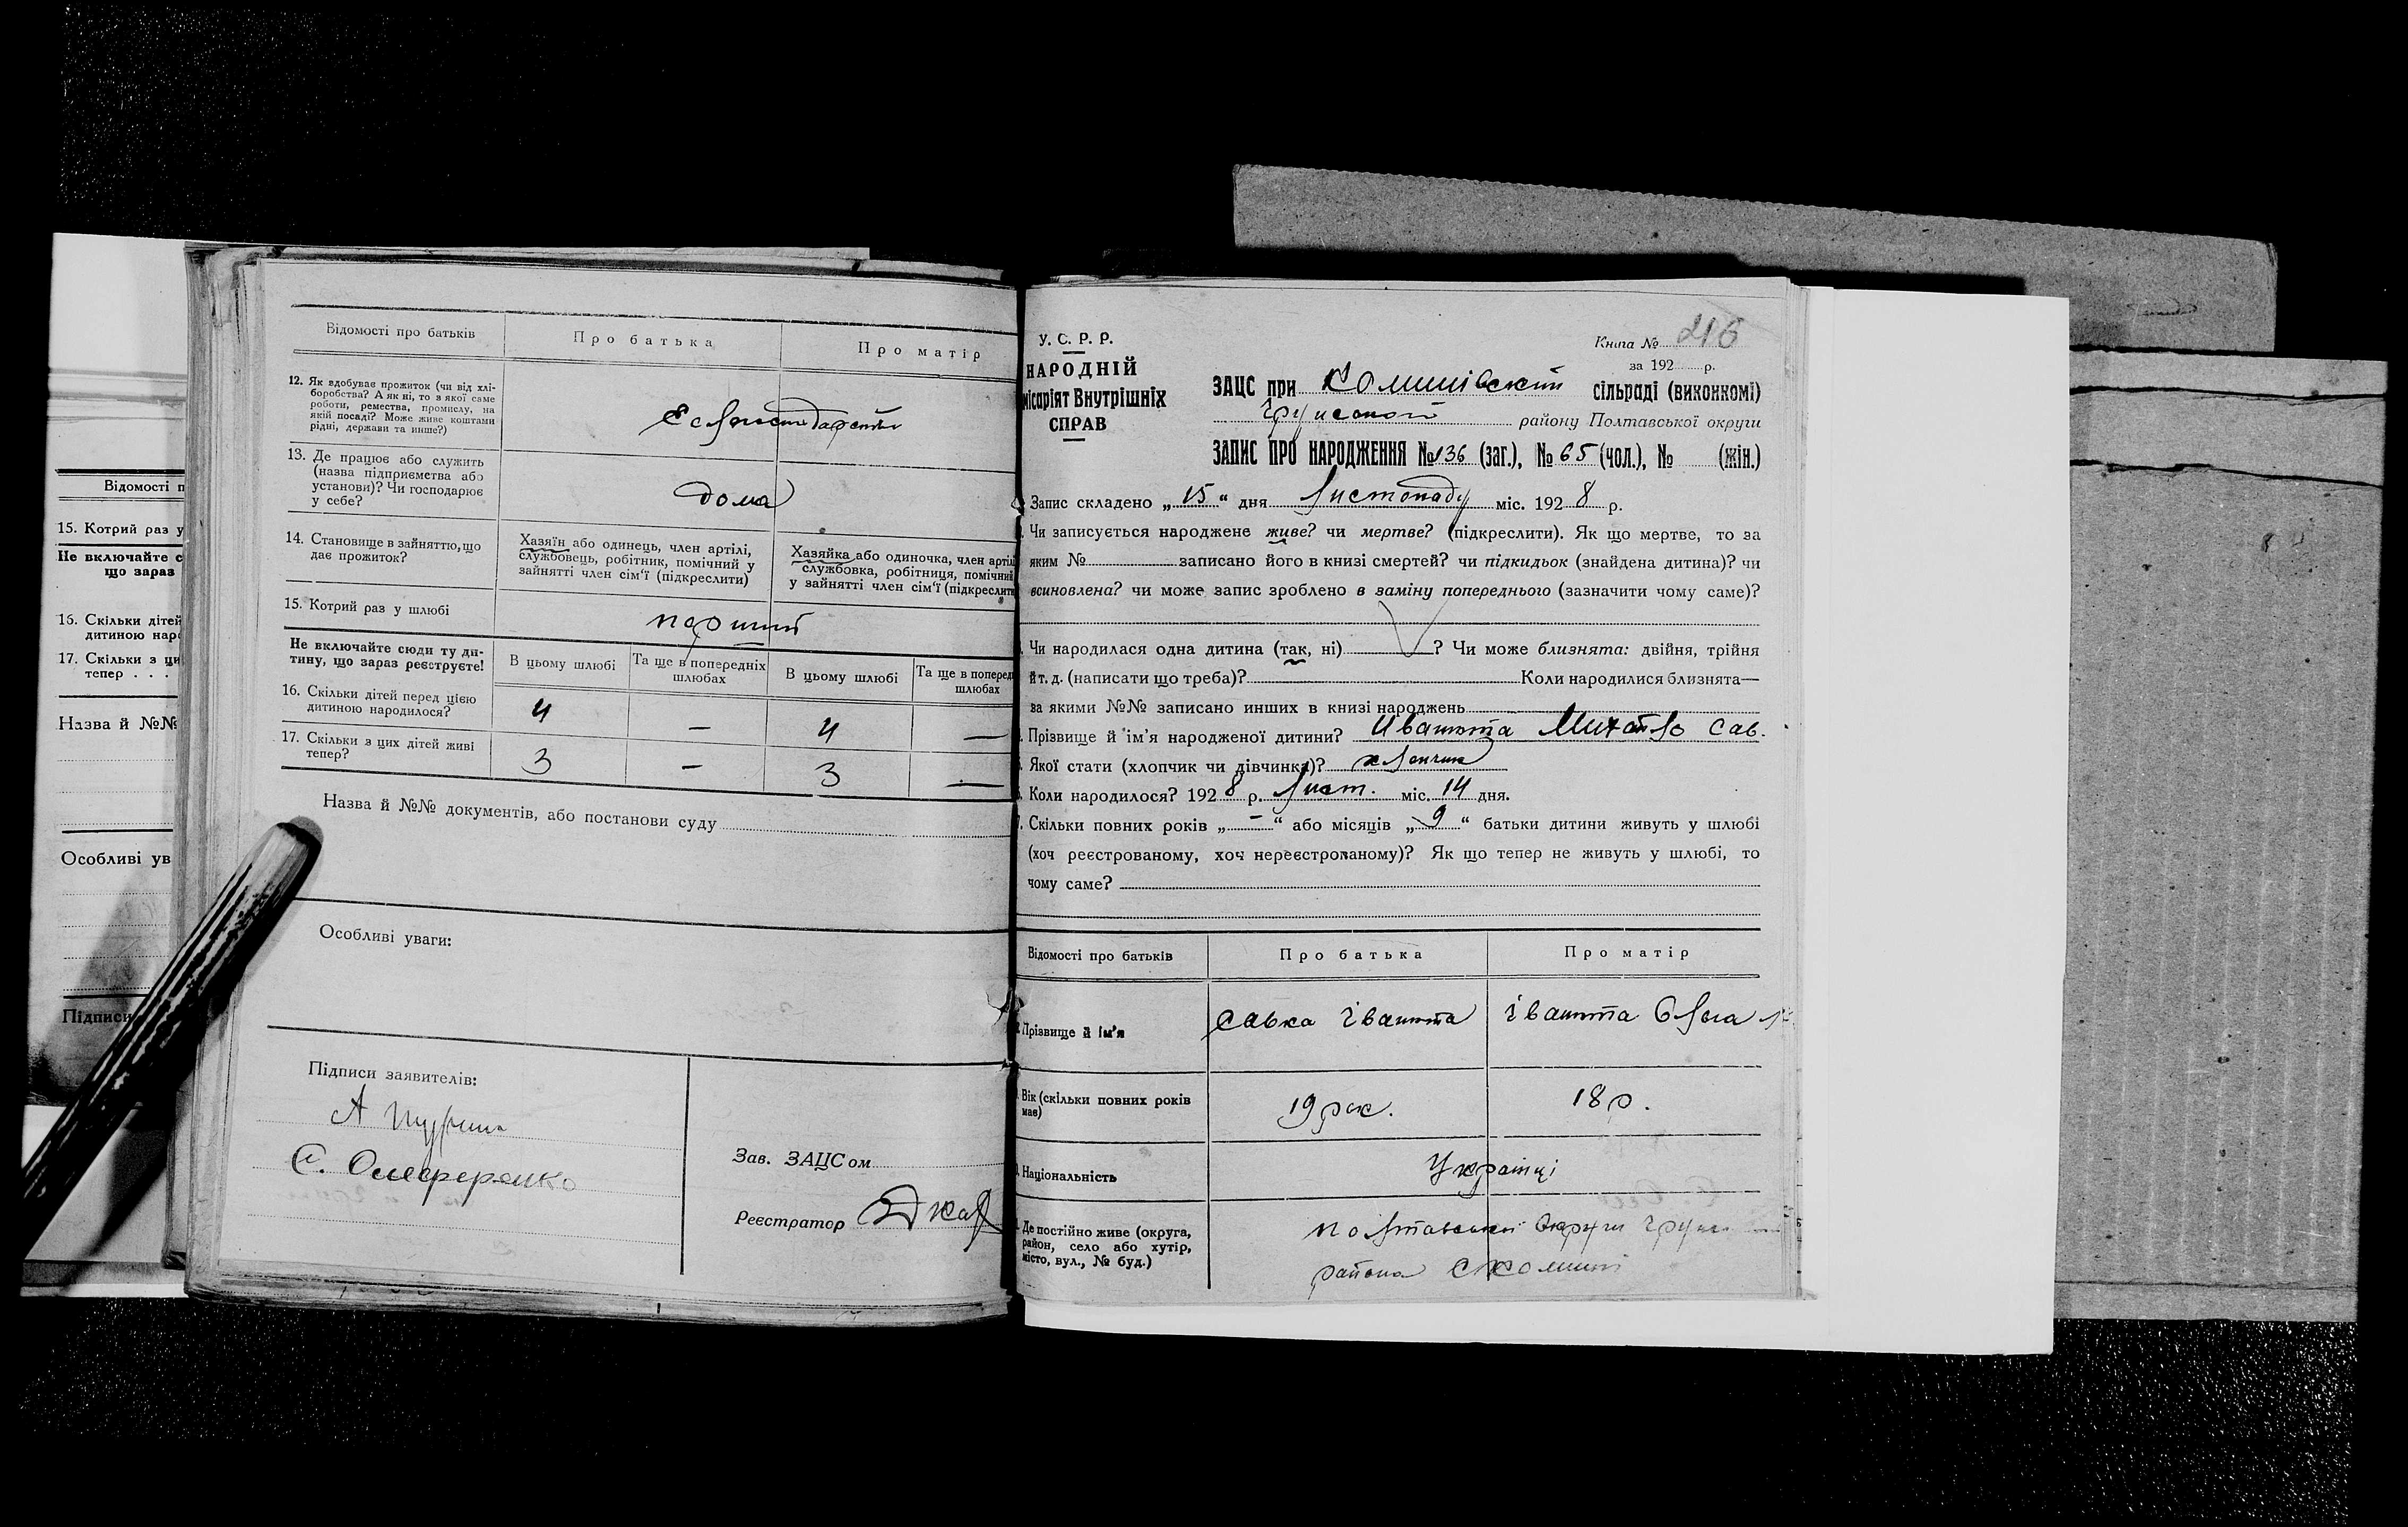 Відомості п
15. Котрий раз у
Не включайте с
що зараз
16. Скільки дітей
дитиною наро
17. Скільки з ци
тепер . . .
Назва й №№
Особливі ув
Підписи
Відомості про батьків
Про батька
Про матір
12. Як здобуває прожиток (чи від хлі-
боробства? А як ні, то з якої саме
роботи, ремества, промислу, на
якій посаді? Може живе коштами
рідні, держави та инше?)
13. Де працює або служить
(назва підприємства або
установи)? Чи господарює
у себе?
дома
14. Становище в зайняттю, що
дає прожиток?
Хазяїн або одинець, член артілі,
службовець, робітник, помічний у
зайнятті член сім'ї (підкреслити)
Хазяйка або одиночка, член артілі
службовка, робітниця, помічний
у зайнятті член сім'ї (підкреслити
15. Котрий раз у шлюбі
перший
Не включайте сюди ту ди-
тину, що зараз реєструєте!
В цьому шлюбі
Та ще в попередніх
шлюбах
В цьому шлюбі
Та ще в поперед
шлюбах
16. Скільки дітей перед цією
дитиною народилося?
4 — 4 —
17. Скільки з цих дітей живі
тепер?
3 — 3 —
Назва й №№ документів, або постанови суду
Особливі уваги:
Підписи заявителів:
А
Є. Олеференко
Зав. ЗАЦСом
Реєстратор
216
У. С. Р. Р.
НАРОДНІЙ
місаріят Внутрішніх
СПРАВ
Книга №
за 192 р.
ЗАЦС при Комишівській сільраді (виконкомі)
Грунської району Полтавської округи
ЗАПИС ПРО НАРОДЖЕННЯ № 136 (заг.), № 65 (чол.), № (жін.)
Запис складено „15“ дня Листопаду міс. 1928 р.
Чи записується народжене живе? чи мертве? (підкреслити). Як що мертве, то за
яким № записано його в книзі смертей? чи підкидьок (знайдена дитина)? чи
всиновлена? чи може запис зроблено в заміну попереднього (зазначити чому саме)?
Чи народилася одна дитина (так, ні) ? Чи може близнята: двійня, трійня
й т. д. (написати що треба)? Коли народилися близнята—
за якими №№ записано инших в книзі народжень
Прізвище й ім'я народженої дитини? Ивашта Михайло Сав.
Якої стати (хлопчик чи дівчинка)? хлопчик
Коли народилось? 1928 р. Лист. міс. 14 дня.
Скільки повних років „—“ або місяців „9“ батьки дитини живуть у шлюбі
(хоч реєстрованому, хоч нереєстрованому)? Як що тепер не живуть у шлюбі, то
чому саме?
Відомості про батьків
Про батька
Про матір
Прізвище й ім'я
Савка Івашта
Івашта Ольга
Вік (скільки повних років
має)
19 рок.
18 р.
Національність
Українці
Де постійно живе (округа,
район, село або хутір,
місто, вул., № буд.)
Полтавської Округи
района с Комиші